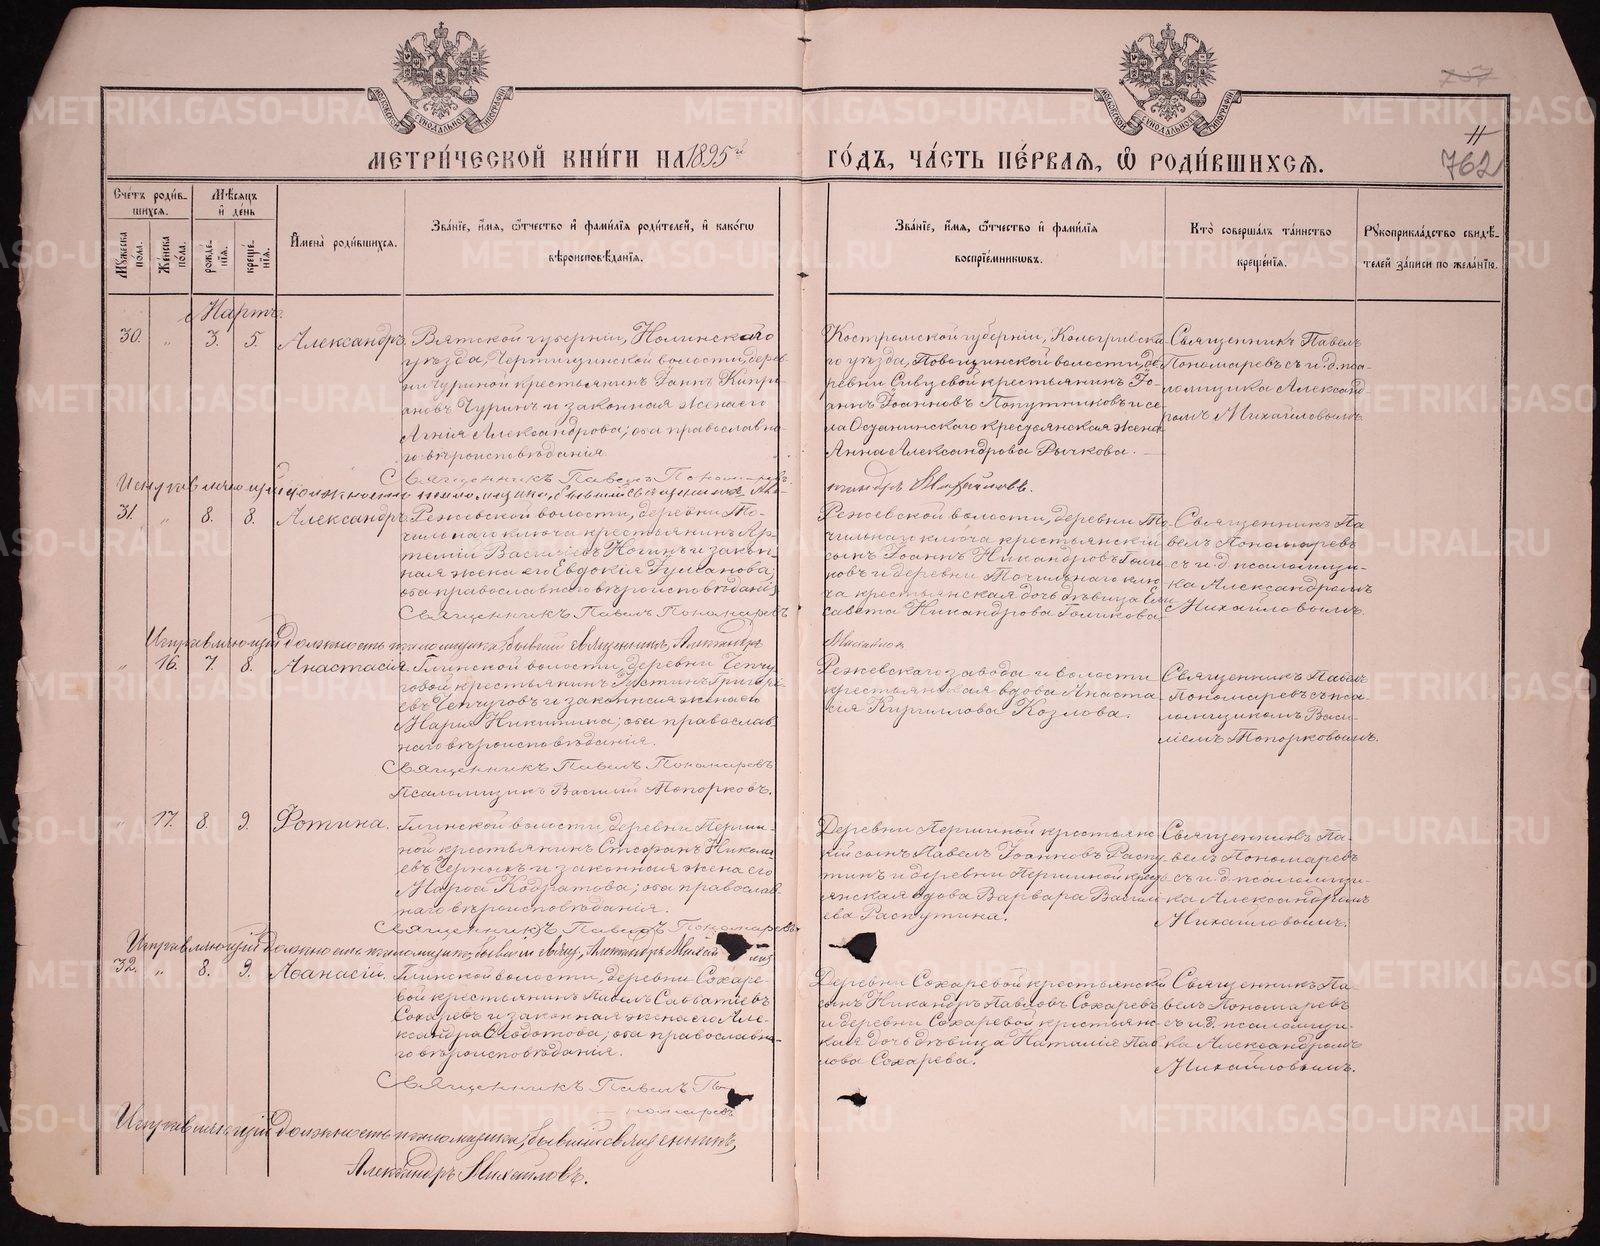 МОСКОВСКОЙ СУНОДАЛЬНОЙ ТИПОГРАФІИ
МОСКОВСКОЙ СУНОДАЛЬНОЙ ТИПОГРАФІИ
757
11
762
МЕТРИ́ЧЕСКОЙ КНИ́ГИ НА 1895й
ГО́ДЪ, ЧА́СТЬ ПЕ́РВАѦ, Ѡ҆ РОДИ́ВШИХСѦ.
Сче́тъ роди́в-
шихсѧ.
Мꙋжеска по́ла.
Же́нска по́ла.
Мѣ́сѧцъ
и҆ де́нь
рожде́нїѧ.
креще́нїѧ.
И҆мена̀ роди́вшихсѧ.
Зва́нїе, и҆́мѧ, ѻ҆́тчество и҆ фами́лїѧ роди́телей, и҆ како́гѡ
вѣроисповѣ́данїѧ.
Зва́нїе, и҆́мѧ, ѻ҆́тчество и҆ фами́лїѧ
воспрїе́мникѡвъ.
Кто̀ соверша́лъ та́инство
креще́нїѧ.
Рꙋкоприкла́дство свидѣ́-
телей за́писи по жела́нїю.
Мартъ.
30. " 3. 5. Александръ.
Вятской губерніи, Нолинскаго
уѣзда, волости, дерев-
ни Чуриной крестьянинъ Іоаннъ Кипрі-
ановъ Чуринъ и законная жена его
Агнія Александрова; оба православна-
го вѣроисповѣданія.
Священникъ Павелъ Пономаревъ
Костромской губерніи, Кологривска-
го уѣзда, волости, де-
ревни Сивцевой крестьянинъ Іо-
аннъ Іоанновъ Попутниковъ и се-
ла Осданинскаго крестьянская жена
Анна Александрова Рычкова.
Священникъ Павелъ
Пономаревъ с и. д. пса-
ломщика Александ-
ромъ Михайловымъ
Исправляющій должность псаломщика, бывшій священникъ Але-
ксандръ Михайловъ.
31. " 8. 8. Александръ.
Режевской волости, деревни То-
чильнаго ключа крестьянинъ Ар-
темій Василіевъ Ногинъ и закон-
ная жена его Евдокія
оба православнаго вѣроисповѣданія
Священникъ Павелъ Пономаревъ
Режевской волости, деревни То-
чильнаго ключа крестьянскій
сынъ Іоаннъ Никандровъ Голи-
ковъ и деревни Точильнаго клю-
ча крестьянская дочь дѣвица Ели-
савета Никандрова Голикова
Священникъ Па-
велъ Пономаревъ
съ и. д. псаломщи-
ка Александромъ
Михайловымъ.
Исправляющій должность псаломщика, бывшій священникъ, Александръ
Михайловъ
" 16. 7. 8. Анастасія.
Глинской волости, деревни Чепчу-
говой крестьянинъ Іустинъ Григорі-
евъ Чепчуговъ и законная жена его
Марія Никитина; оба православ-
наго вѣроисповѣданія.
Священникъ Павелъ Пономаревъ
Псаломщикъ Василій Топорковъ.
Режевскаго завода и волости
крестьянская вдова Анаста-
сія Кириллова Козлова.
Священникъ Павелъ
Пономаревъ съ пса-
ломщикомъ Васи-
ліемъ Топорковымъ.
" 17. 8. 9. Фотина.
Глинской волости, деревни Перши-
ной крестьянинъ Стефанъ Никола-
евъ Черныхъ и законная жена его
Марѳа Кодратова; оба православ-
наго вѣроисповѣданія.
Священникъ Павелъ Пономаревъ
Деревни Першиной крестьянс-
кій сынъ Павелъ Іоанновъ Распу-
тинъ и деревни Першиной кресть-
янская вдова Варвара Васили-
ева Распутина.
Священникъ Па-
велъ Пономаревъ
съ и. д. псаломщи-
ка Александромъ
Михайловымъ.
Исправляющій должность псаломщика, бывшій священ., Александръ Михайловъ
32. " 8. 9. Аѳанасій.
Глинской волости, деревни Сохаре-
вой крестьянинъ Павелъ Савватіевъ
Сохаревъ и законная жена его Але-
ксандра Ѳеодотова; оба православна-
го вѣроисповѣданія.
Священникъ Павелъ По-
номаревъ
Деревни Сохаревой крестьянскій
сынъ Никандръ Павловъ Сохаревъ
и деревни Сохаревой крестьянс-
кая дочь дѣвица Наталія Пав-
лова Сохарева.
Священникъ Па-
велъ Пономаревъ
съ и. д. псаломщи-
ка Александромъ
Михайловымъ.
Исправляющій должность псаломщика, бывшій священникъ,
Александръ Михайловъ.
METRIKI.GASO-URAL.RU